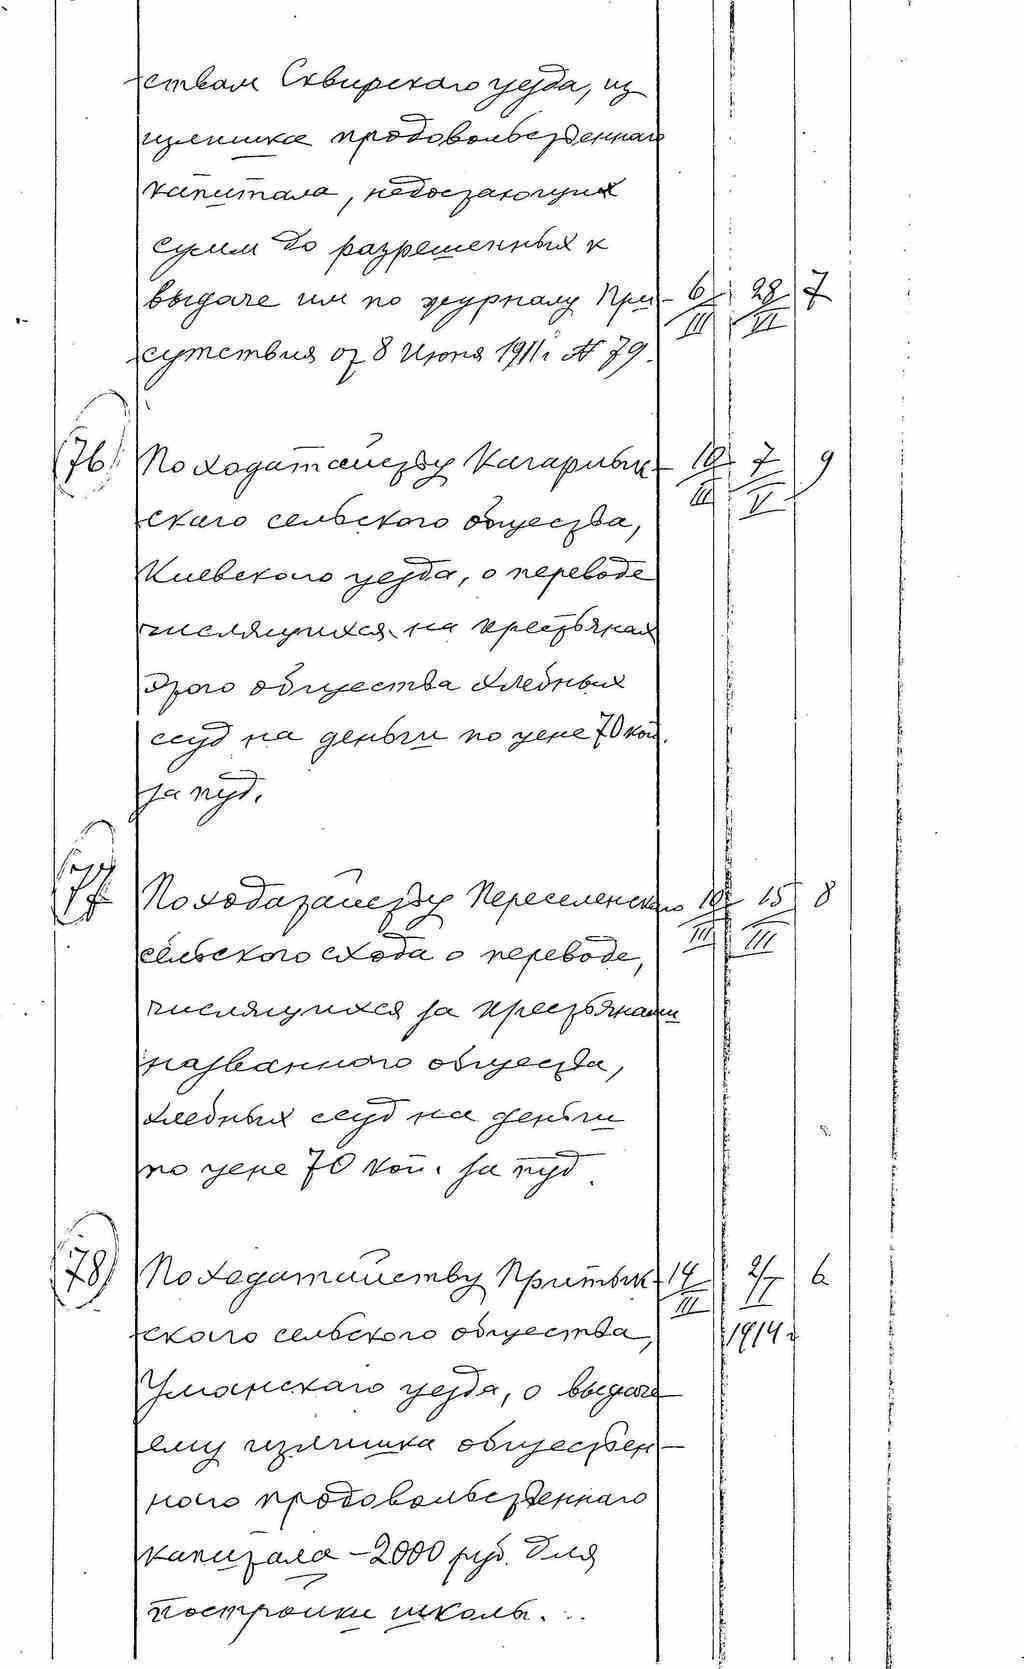 ствам Сквирского уезда, из
излишка продовольственнаго
капитала, недостающих
сумм до разрешенных к
выдаче им по журналу При- 6/III 28/VI 7
сутствия от 8 Июня 1911 г № 79.
76 По ходатайству Кагарлык- 10/III 7/V 9
скаго сельского общества,
Киевского уезда, о переводе
числящихся на крестьянах
этого общества хлебных
ссуд на деньги по цене 70 коп.
за пуд.
77 По ходатайству Переселенскаго 10/III 15/III 8
сельского схода о переводе,
числящихся за крестьянами
названного общества,
хлебных ссуд на деньги
по цене 70 коп. за пуд.
78 По ходатайству Притык- 14/III 2/II 6
ского сельского общества, 1914 г
Уманскаго уезда, о выдаче
ему излишка обществен-
ного продовольственнаго
капитала - 2000 руб. для
постройки школы.